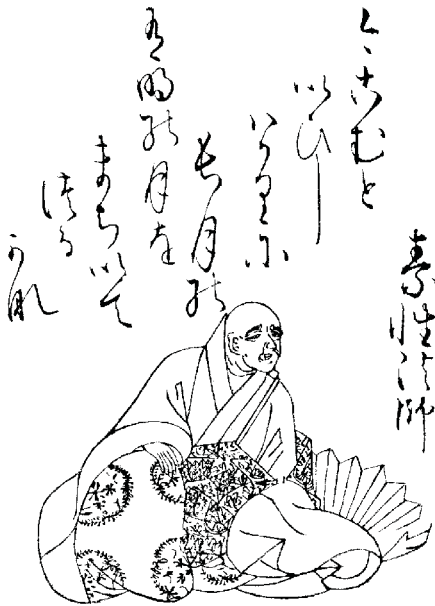 素性法師
今こむと
いひし
はかりに
長月の
有明の月を
まちいて
つる
かな